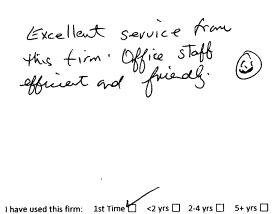 Excellent service from
this firm. Office staff
efficient and friendly.
I have used this firm: 1st Time ☐ <2 yrs ☐ 2-4 yrs ☐ 5+ yrs ☐